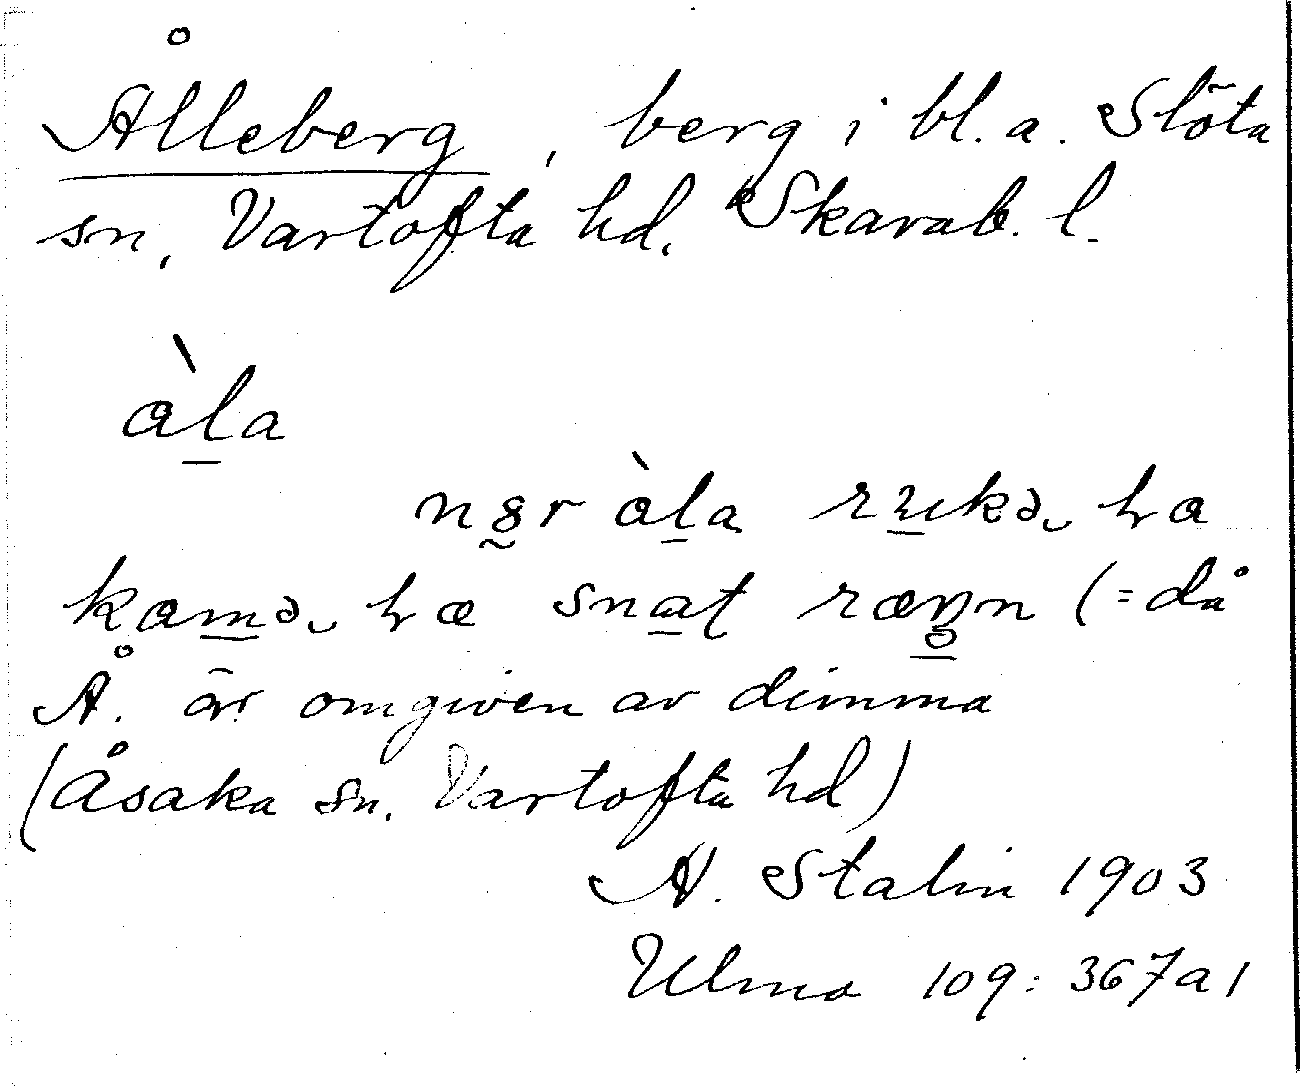 Ålleberg, berg i bl. a. Slöta
sn, Vartofta hd, Skarab. l.
àl̲a
nər àl̲a rukə, ha
kam̲ə, hæ snat̲ rægn (= då
Å. är omgiven av dimma
(Åsaka sn, Vartofta hd)
A. Stalin 1903
Ulma 109: 367a 1